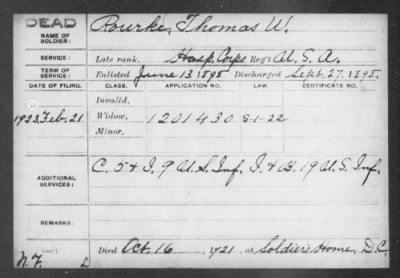 DEAD
NAME OF SOLDIER: Rourke, Thomas W.
SERVICE: Late rank, Hosp. Corps Reg't U. S. A.
TERM OF SERVICE: Enlisted June 13, 1898 Discharged Sept. 27, 1898.
DATE OF FILING. CLASS. APPLICATION NO. CERTIFICATE NO.
Invalid,
1923 Feb. 21 Widow, 1201430 8-1-22
Minor,
ADDITIONAL SERVICES: C. 5 & I. 9 U.S. Inf. I. & B. 19 U.S. Inf.
REMARKS:
Died Oct. 16, 1921, at Soldiers Home, D.C.